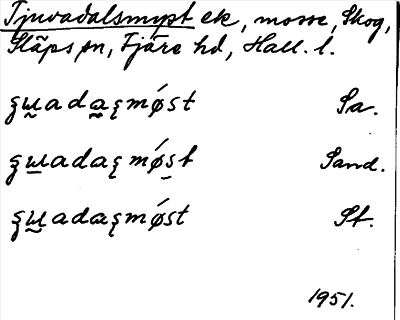 Tjuvadalsmyst ek, mosse, Skog,
Släps sn, Fjäre hd, Hall. l.
ʒɯ̰ada̰ʒmǿst Sa.
ʒɯ̱adaʒmǿs̱t Sand.
ʒɯ̰adaʒmǿst St.
1951.